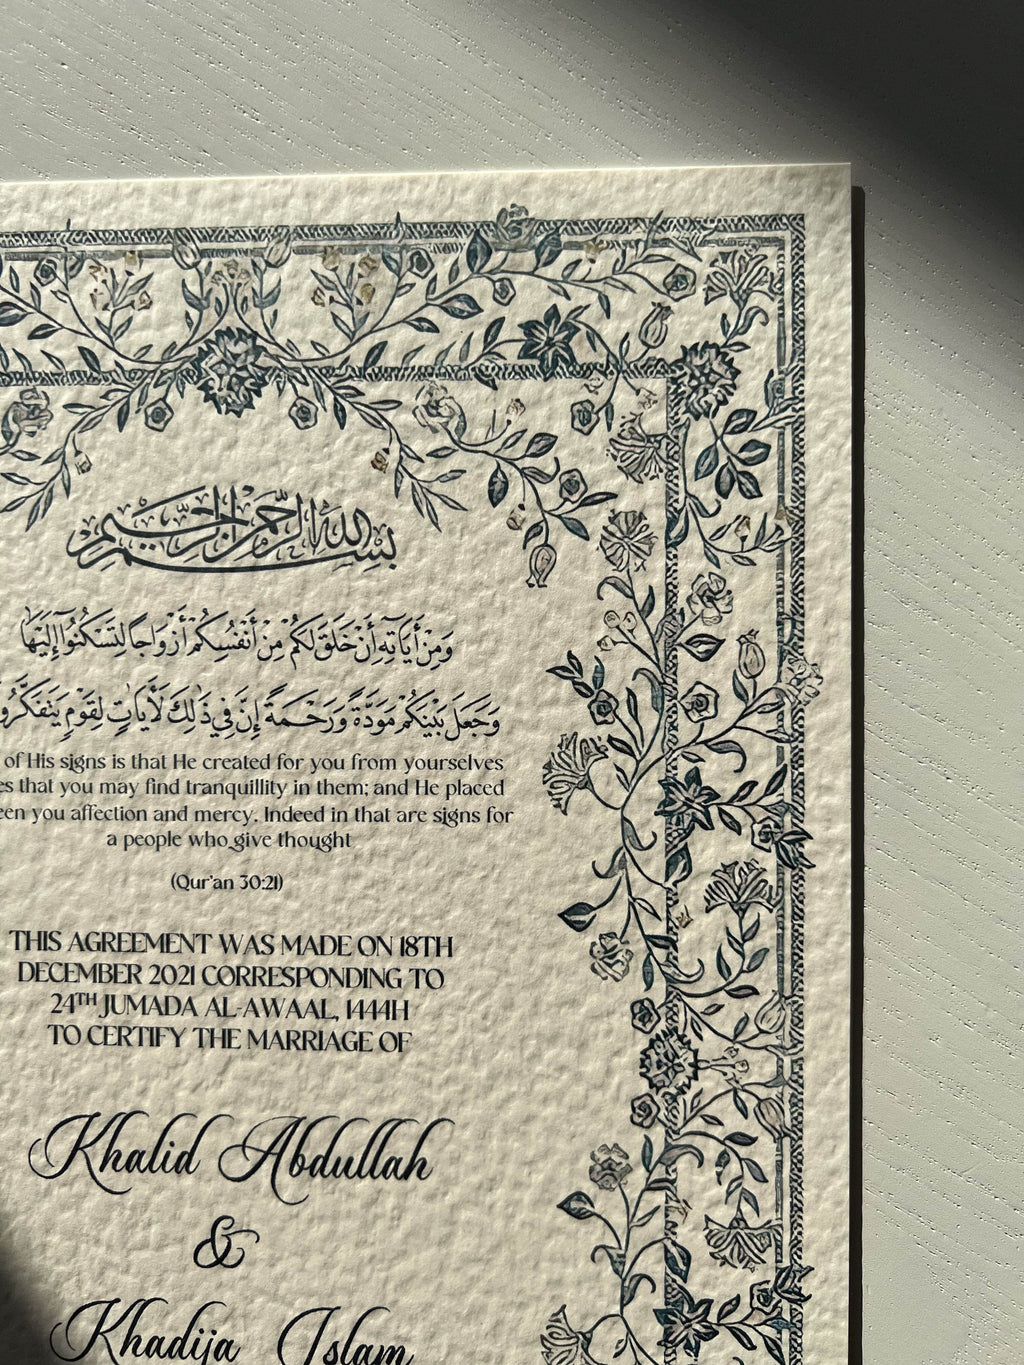 بسم الله الرحمن الرحيم
وَمِنْ أَيَاتِهِ أَنْ خَلَقَ لَكُمْ مِنْ أَنْفُسِكُمْ أَزْوَاجًا لِتَسْكُنُوا إِلَيْهَا
وَجَعَلَ بَيْنَكُمْ مَوَدَّةً وَرَحْمَةً إِنَّ فِي ذَٰلِكَ لَأَيَاتٍ لِقَوْمٍ
of His signs is that He created for you from yourselves
that you may find tranquillity in them; and He placed
you affection and mercy. Indeed in that are signs for
a people who give thought
(Qur'an 30:21)
THIS AGREEMENT WAS MADE ON 18TH
DECEMBER 2021 CORRESPONDING TO
24TH JUMADA AL-AWAAL, 1444H
TO CERTIFY THE MARRIAGE OF
Khalid Abdullah
&
Khadija Islam